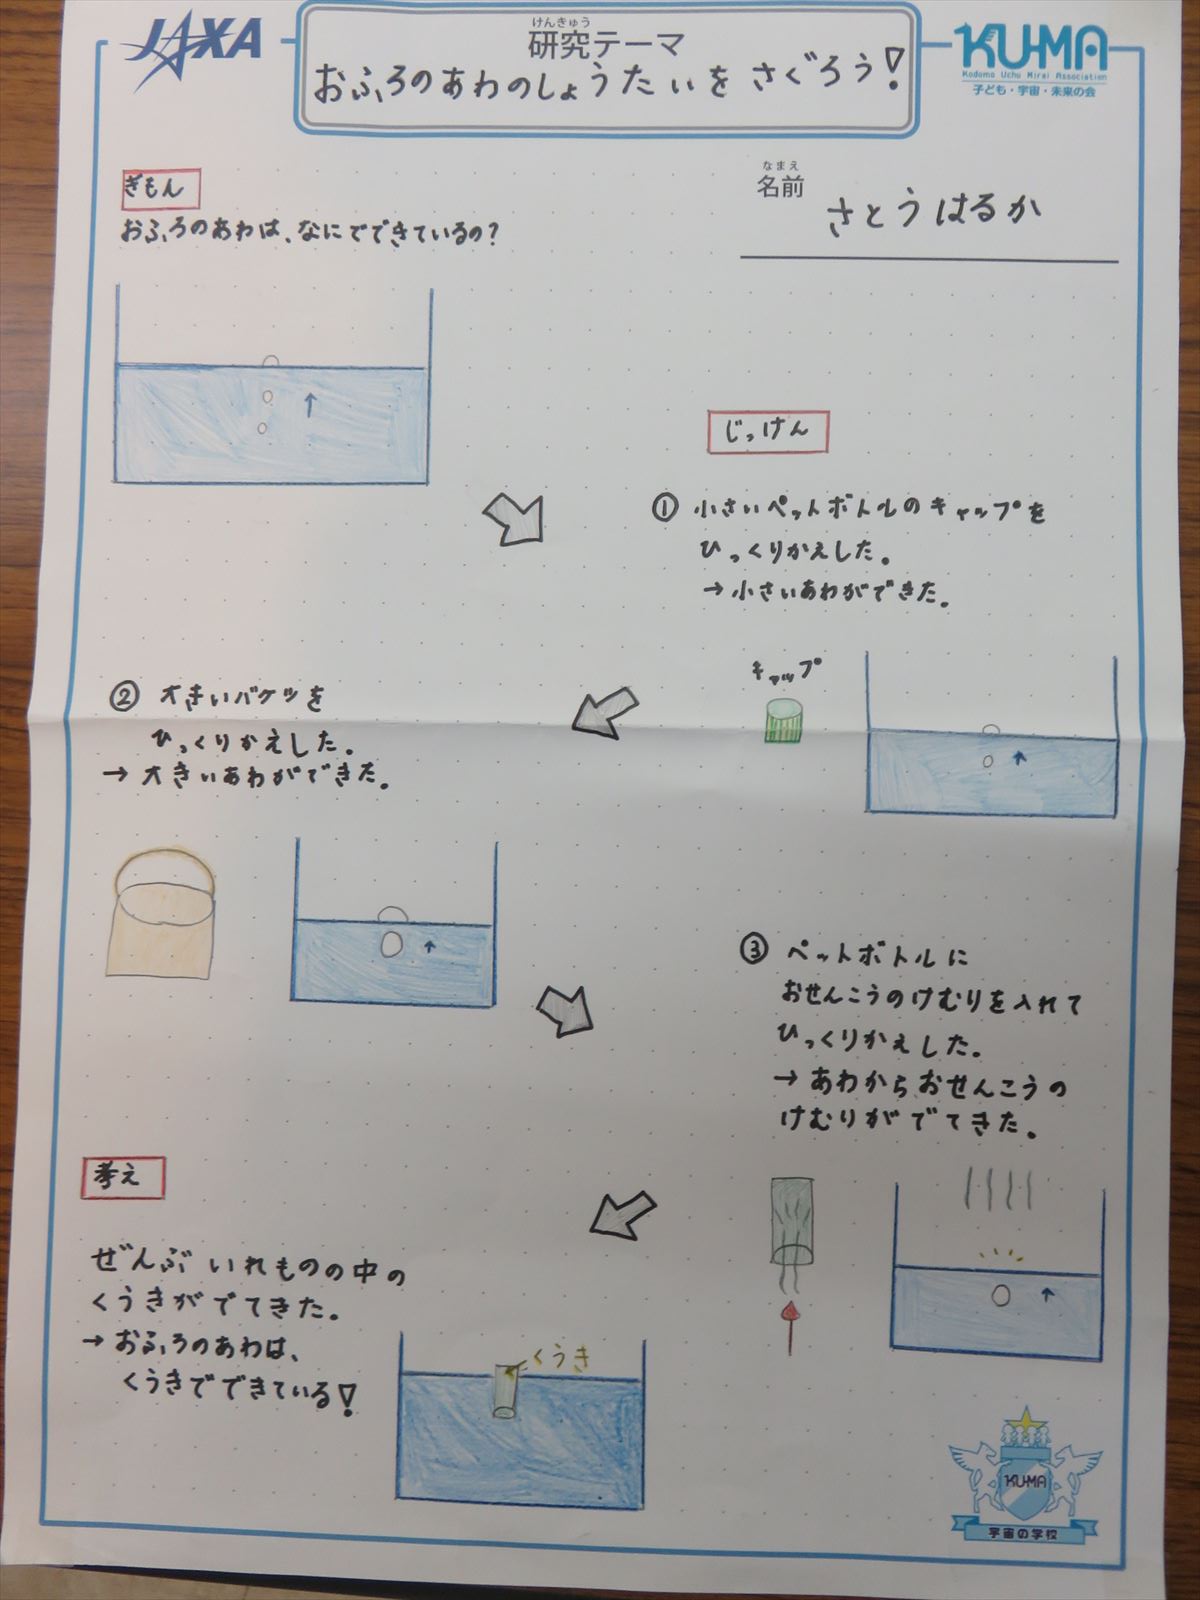 JAXA
けんきゅう
研究テーマ
おふろのあわのしょうたいをさぐろう!
KU-MA
Kodomo Uchu Mirai Association
子ども・宇宙・未来の会
なまえ
名前
さとうはるか
ぎもん
おふろのあわは、なにでできているの?
じっけん
① 小さいペットボトルのキャップを
ひっくりかえした。
→小さいあわができた。
キャップ
② 大きいバケツを
ひっくりかえした。
→ 大きいあわができた。
③ ペットボトルに
おせんこうのけむりを入れて
ひっくりかえした。
→あわからおせんこうの
けむりがでてきた。
考え
ぜんぶ いれものの中の
くうきがでてきた。
→おふろのあわは、
くうきでできている!
くうき
KU-MA
宇宙の学校